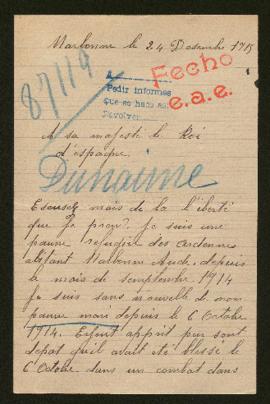 Narbonne le 24 Décembre 1915
87119
Fecho
e.a.e.
Pedir informes
que se haga
Devolver
A sa majesté le Roi
d'espagne.
Dunaime
Escusez mais de la l'iberté
que je prend. Je suis une
pauvre refugiée des ardennes
Narbonne Aude, depuis
le mois de semptembre 1914
Je suis sans nouvelle de mon
pauvre mari depuis le 6 Octobre
1914. apprit par son
depot qu'il avait été blesse le
6 Octobre dans un combat dans